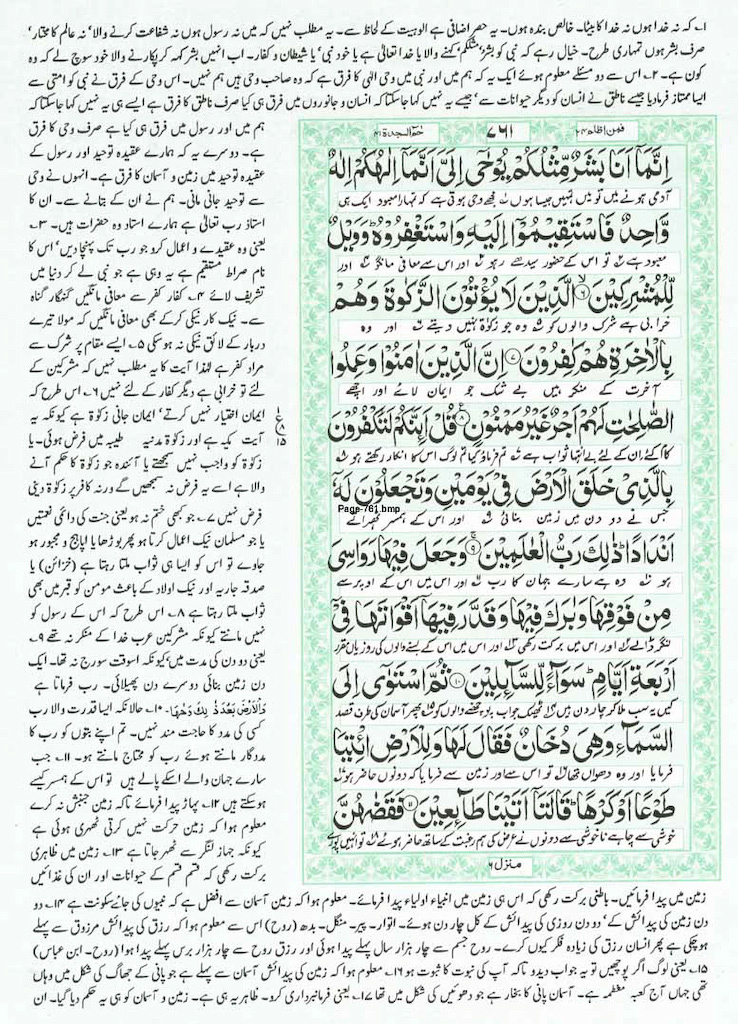 ۱۔ کہ نہ خدا ہوں نہ خدا کا بیٹا۔ خالص بندہ ہوں۔ یہ حصر اضافی ہے الوہیت کے لحاظ سے۔ یہ مطلب نہیں کہ میں نہ رسول ہوں نہ شفاعت کرنے والا' نہ عالم کا مختار'
صرف بشر ہوں تمہاری طرح۔ خیال رہے کہ نبی کو بشر' مثلکم' کہنے والا یا خدا تعالیٰ ہے یا خود نبی' یا شیطان و کفار۔ اب انہیں بشر کہہ کر پکارنے والا خود سوچ لے کہ وہ
کون ہے۔ ۲۔ اس سے دو مسئلے معلوم ہوئے ایک یہ کہ ہم میں اور نبی میں وحی الہی کا فرق ہے کہ وہ صاحب وحی ہیں ہم نہیں۔ اس وحی کے فرق نے نبی کو امتی سے
ایسا ممتاز فرما دیا جیسے ناطق نے انسان کو دیگر حیوانات سے' جیسے یہ نہیں کہا جا سکتا کہ انسان و جانوروں میں فرق ہی کیا صرف ناطق کا فرق ہے ایسے ہی یہ نہیں کہا جا سکتا کہ
فمن اظلم ۲۴
۷۶۱
حٰمٓ السجدۃ ۴۱
اِنَّمَاۤ اَنَا بَشَرٌ مِّثْلُكُمْ يُوْحٰۤى اِلَيَّ اَنَّمَاۤ اِلٰهُكُمْ اِلٰهٌ
آدمی ہونے میں تو میں تمہیں جیسا ہوں مجھے وحی ہوتی ہے کہ تمہارا معبود ایک ہی
وَّاحِدٌ فَاسْتَقِيْمُوْۤا اِلَيْهِ وَاسْتَغْفِرُوْهُ ؕ وَوَيْلٌ
معبود ہے تو اس کے حضور سیدھے رہو اور اس سے معافی مانگو اور
لِّلْمُشْرِكِيْنَ ۙ۶ الَّذِيْنَ لَا يُؤْتُوْنَ الزَّكٰوةَ وَهُمْ
خرابی ہے شرک والوں کو وہ جو زکوٰۃ نہیں دیتے اور وہ
بِالْاٰخِرَةِ هُمْ كٰفِرُوْنَ ۷ اِنَّ الَّذِيْنَ اٰمَنُوْا وَعَمِلُوا
آخرت کے منکر ہیں بے شک جو ایمان لائے اور اچھے
الصّٰلِحٰتِ لَهُمْ اَجْرٌ غَيْرُ مَمْنُوْنٍ ۸ قُلْ اَئِنَّكُمْ لَتَكْفُرُوْنَ
کام کئے ان کے لئے بے انتہا ثواب ہے تم فرماؤ کیا تم لوگ اس کا انکار رکھتے ہو
بِالَّذِيْ خَلَقَ الْاَرْضَ فِيْ يَوْمَيْنِ وَتَجْعَلُوْنَ لَهٗۤ
Page-761.bmp
جس نے دو دن میں زمین بنائی اور اس کے ہمسر ٹھہراتے
اَنْدَادًا ؕ ذٰلِكَ رَبُّ الْعٰلَمِيْنَ ۹ وَجَعَلَ فِيْهَا رَوَاسِيَ
ہو وہ ہے سارے جہان کا رب اور اس میں اس کے اوپر سے
مِنْ فَوْقِهَا وَبٰرَكَ فِيْهَا وَقَدَّرَ فِيْهَاۤ اَقْوَاتَهَا فِيْۤ
لنگر ڈالے اور اس میں برکت رکھی اور اس میں اس کے بسنے والوں کی روزیاں مقرر
اَرْبَعَةِ اَيَّامٍ ؕ سَوَآءً لِّلسَّآئِلِيْنَ ۱۰ ثُمَّ اسْتَوٰۤى اِلَى
کیں یہ سب ملا کر چار دن میں ٹھیک جواب پوچھنے والوں کو پھر آسمان کی طرف قصد
السَّمَآءِ وَهِيَ دُخَانٌ فَقَالَ لَهَا وَلِلْاَرْضِ ائْتِيَا
فرمایا اور وہ دھواں تھا تو اس سے اور زمین سے فرمایا کہ دونوں حاضر ہو
طَوْعًا اَوْ كَرْهًا ؕ قَالَتَاۤ اَتَيْنَا طَآئِعِيْنَ ۱۱ فَقَضٰهُنَّ
خوشی سے چاہے ناخوشی سے دونوں نے عرض کی ہم رغبت کے ساتھ حاضر ہوئے تو انہیں پورے
منزل ۶
ہم میں اور رسول میں فرق ہی کیا ہے صرف وحی کا فرق
ہے۔ دوسرے یہ کہ ہمارے عقیدہ توحید اور رسول کے
عقیدہ توحید میں زمین و آسمان کا فرق ہے۔ انہوں نے وحی
سے توحید جانی مانی۔ ہم نے ان کے بتانے سے۔ ان کا
استاذ رب تعالیٰ ہے ہمارے استاد وہ حضرات ہیں۔ ۳۔
یعنی وہ عقیدے و اعمال کرو جو رب تک پہنچا دیں' اس کا
نام صراط مستقیم ہے یہ وہی ہے جو نبی لے کر دنیا میں
تشریف لائے ۴۔ کفار کفر سے معافی مانگیں گنہگار گناہ
سے۔ نیک کار نیکی کرکے بھی معافی مانگیں کہ مولا تیرے
دربار کے لائق نیکی نہ ہو سکی ۵۔ ایسے مقام پر شرک سے
مراد کفر ہے لہٰذا آیت کا یہ مطلب نہیں کہ مشرکین کے
لئے تو خرابی ہے دیگر کفار کے لئے نہیں ۶۔ اس طرح کہ
ایمان اختیار نہیں کرتے' ایمان جانی زکوٰۃ ہے کیونکہ یہ
آیت مکیہ ہے اور زکوٰۃ مدنیہ طیبہ میں فرض ہوئی۔ یا
زکوٰۃ کو واجب نہیں سمجھتے یا آئندہ جو زکوٰۃ کا حکم آنے
والا ہے اسے یہ فرض نہ سمجھیں گے ورنہ کافر پر زکوٰۃ دینی
فرض نہیں ۷۔ جو کبھی ختم نہ ہو یعنی جنت کی دائمی نعمتیں
یا جو مسلمان نیک اعمال کرتا ہو پھر بوڑھا یا اپاہج و مجبور ہو
جاوے تو اس کو ایسا ہی ثواب ملتا رہتا ہے (خزائن) یا
صدقہ جاریہ اور نیک اولاد کے باعث مومن کو قبر میں بھی
ثواب ملتا رہتا ہے ۸۔ اس طرح کہ اس کے رسول کو
نہیں مانتے کیونکہ مشرکین عرب خدا کے منکر نہ تھے ۹۔
یعنی دو دن کی مدت میں' کیونکہ اسوقت سورج نہ تھا۔ ایک
دن زمین بنائی دوسرے دن پھیلائی۔ رب فرماتا ہے
وَالْاَرْضَ بَعْدَ ذٰلِکَ دَحٰہَا۔ ۱۰۔ حالانکہ ایسا قدرت والا رب
کسی کی مدد کا حاجت مند نہیں۔ تم اپنے بتوں کو رب کا
مددگار مانتے ہوئے رب کو محتاج مانتے ہو۔ ۱۱۔ جب
سارے جہان والے اسکے پالے ہیں تو اس کے ہمسر کیسے
ہوسکتے ہیں ۱۲۔ پہاڑ پیدا فرمائے تاکہ زمین جنبش نہ کرے
معلوم ہوا کہ زمین حرکت نہیں کرتی ٹھہری ہوئی ہے
کیونکہ جہاز لنگر سے ٹھہر جاتا ہے ۱۳۔ زمین میں ظاہری
برکت رکھی کہ قسم قسم کے حیوانات اور ان کی غذائیں
ع
۸
۱۵
زمین میں پیدا فرمائیں۔ باطنی برکت رکھی کہ اس ہی زمین میں انبیاء اولیاء پیدا فرمائے۔ معلوم ہوا کہ زمین آسمان سے افضل ہے کہ نبیوں کی جائے سکونت ہے ۱۴۔ دو
دن زمین کی پیدائش کے' دو دن روزی کی پیدائش کے کل چار دن ہوئے۔ اتوار۔ پیر۔ منگل۔ بدھ (روح) اس سے معلوم ہوا کہ رزق کی پیدائش مرزوق سے پہلے
ہو چکی ہے پھر انسان رزق کی زیادہ فکر کیوں کرے۔ روح جسم سے چار ہزار سال پہلے پیدا ہوئی اور رزق روح سے چار ہزار برس پہلے پیدا ہوا (روح۔ ابن عباس)
۱۵۔ یعنی لوگ اگر پوچھیں تو یہ جواب دیدو تاکہ آپ کی نبوت کا ثبوت ہو ۱۶۔ معلوم ہوا کہ زمین کی پیدائش آسمان سے پہلے ہے جو پانی کے جھاگ کی شکل میں وہاں
تھی جہاں آج کعبہ معظمہ ہے۔ آسمان پانی کا بخار ہے جو دھوئیں کی شکل میں تھا ۱۷۔ یعنی فرمانبرداری کرو۔ ظاہر یہ ہی ہے۔ زمین و آسمان کو ہی یہ حکم دیا گیا۔ ان